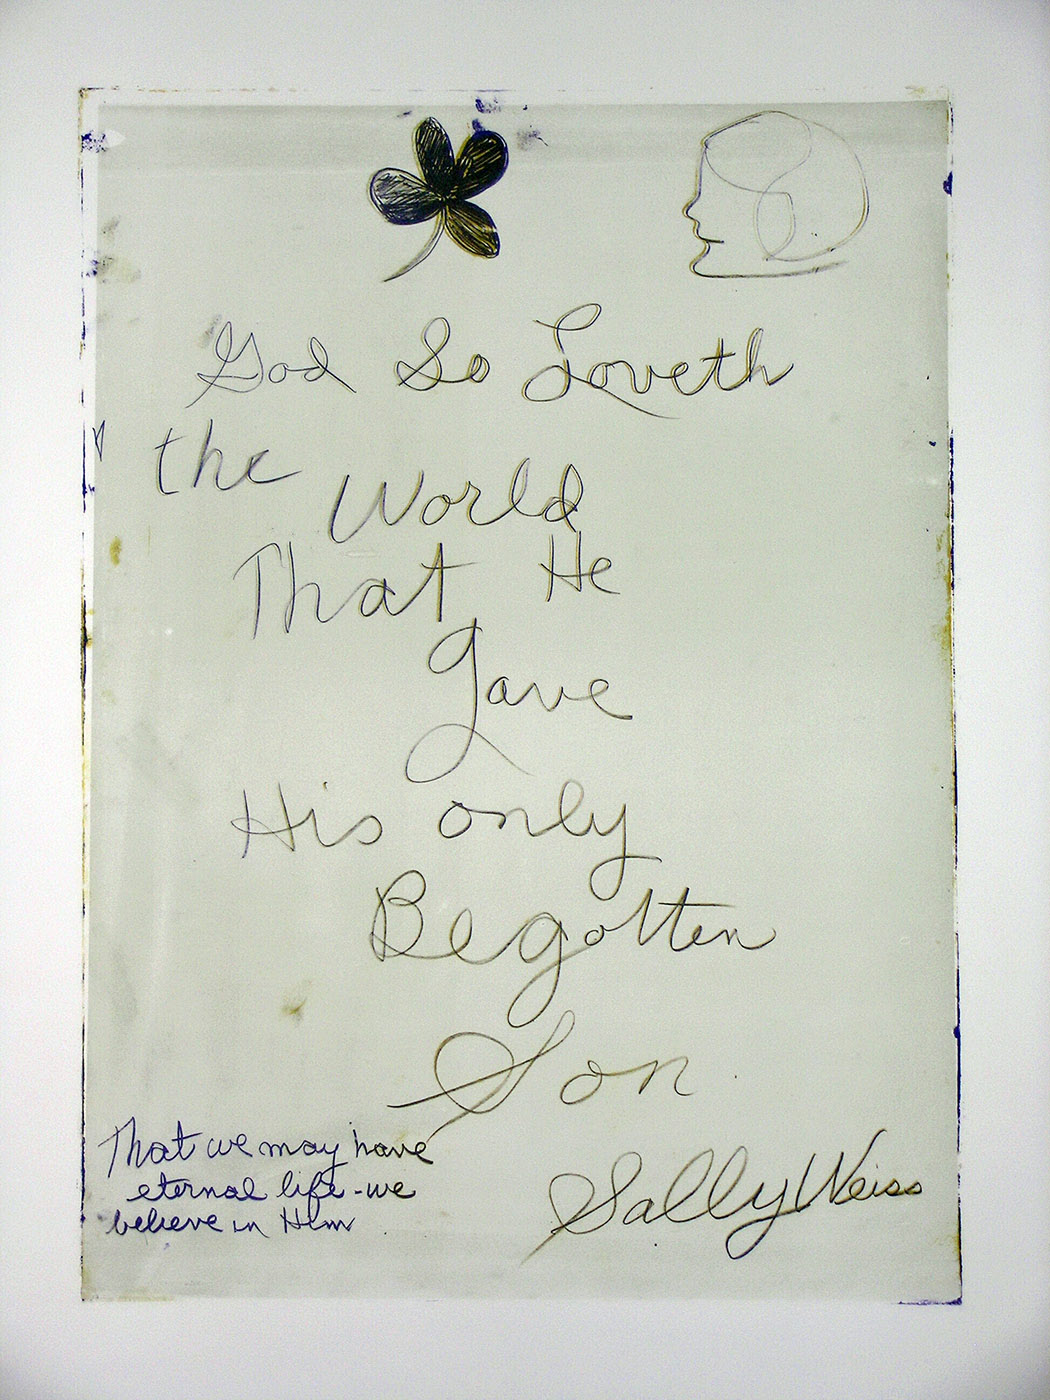 God So Loveth
the
World
That He
Gave
His only
Begotten
Son
That we may have
eternal life - we
believe in Him
Sally Weiss